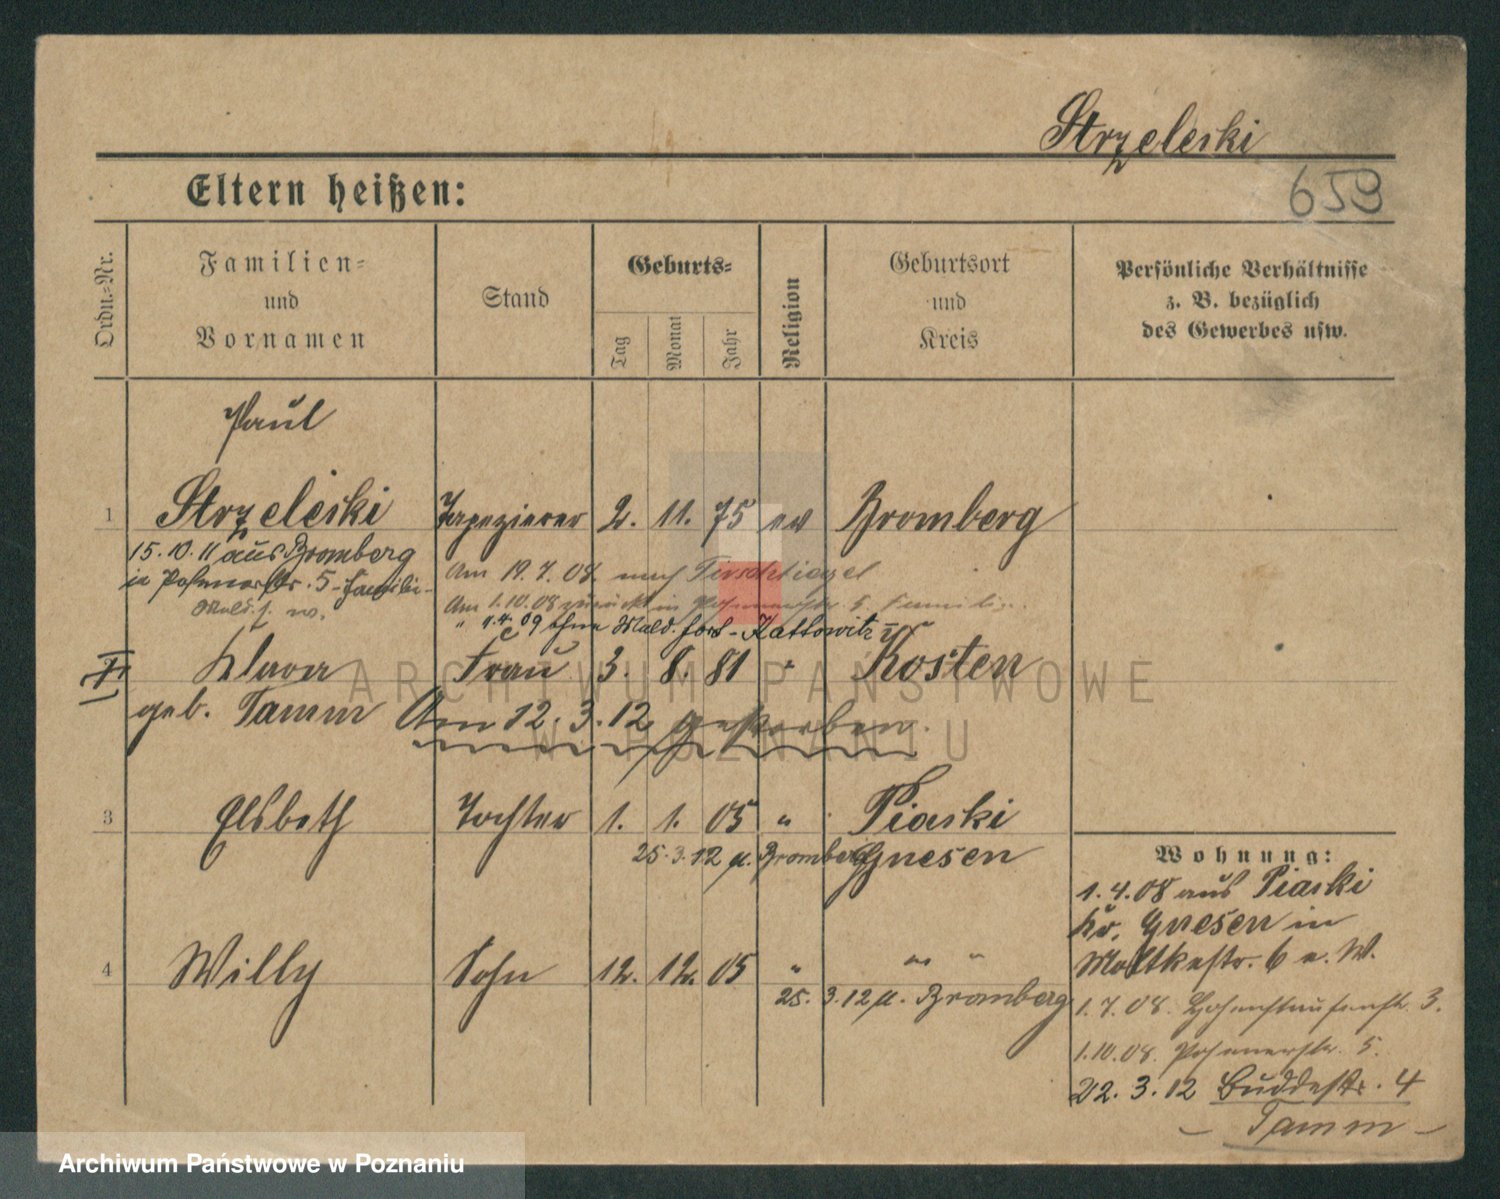 Strzeleski
Eltern heißen:
659
Ordn.-Nr.
Familien-
und
Vornamen
Stand
Geburts-
Tag
Monat
Jahr
Religion
Geburtsort
und
Kreis
Persönliche Verhältnisse
z. B. bezüglich
des Gewerbes usw.
Paul
1 Strzeleski Tapezierer 2. 11. 75 ev Bromberg
15.10.11 aus Bromberg
in Posenerstr. 5 - Familie
Am 19.7.08 nach Tirschtiegel
Am 1.10.08 zurück in Posenerstr. 5. Familie.
" 1.4.09 ohne Meld. fort - Kattowitz
Klara Frau 3. 8. 81 " Kosten
geb. Tamm Am 12.3.12 gestorben.
3 Elsbeth Tochter 1. 1. 05 " Piaski
25.3.12 n. Bromberg Gnesen
4 Willy Sohn 12. 12. 05 " " "
25.3.12 n. Bromberg
Wohnung:
1.4.08 aus Piaski
Kr. Gnesen in
Moltkestr. 6 e. W.
1.7.08. Hohenstaufenstr. 3.
1.10.08. Posenerstr. 5.
22.3.12 Buddestr. 4
- Tamm -
ARCHIWUM PAŃSTWOWE
W POZNANIU
Archiwum Państwowe w Poznaniu